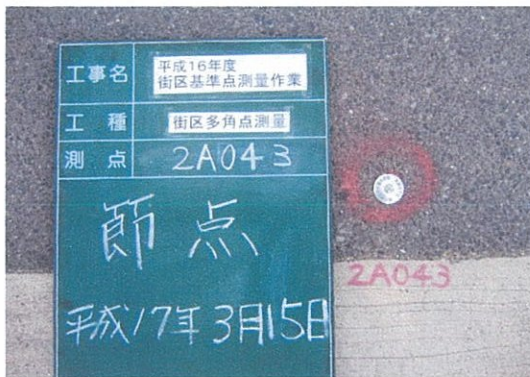 工事名
平成16年度
街区基準点測量作業
工種
街区多角点測量
測点
2A043
節点
平成17年3月15日
2A043